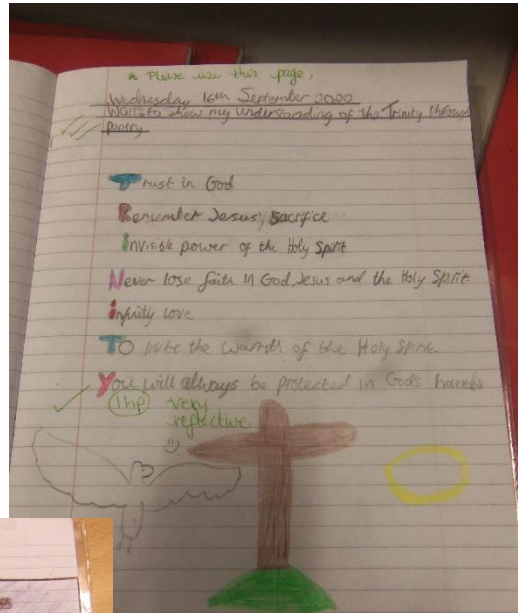 * Please use this page.
Wednesday 16th September 2020
Walt: to show my understanding of the Trinity through
poetry
Trust in God
Remember Jesus' sacrifice
Invisible power of the Holy Spirit
Never lose faith in God, Jesus and the Holy Spirit.
infinitly love
To invite the warmth of the Holy Spirit.
You will always be protected in God's hands
1hp very
reflective